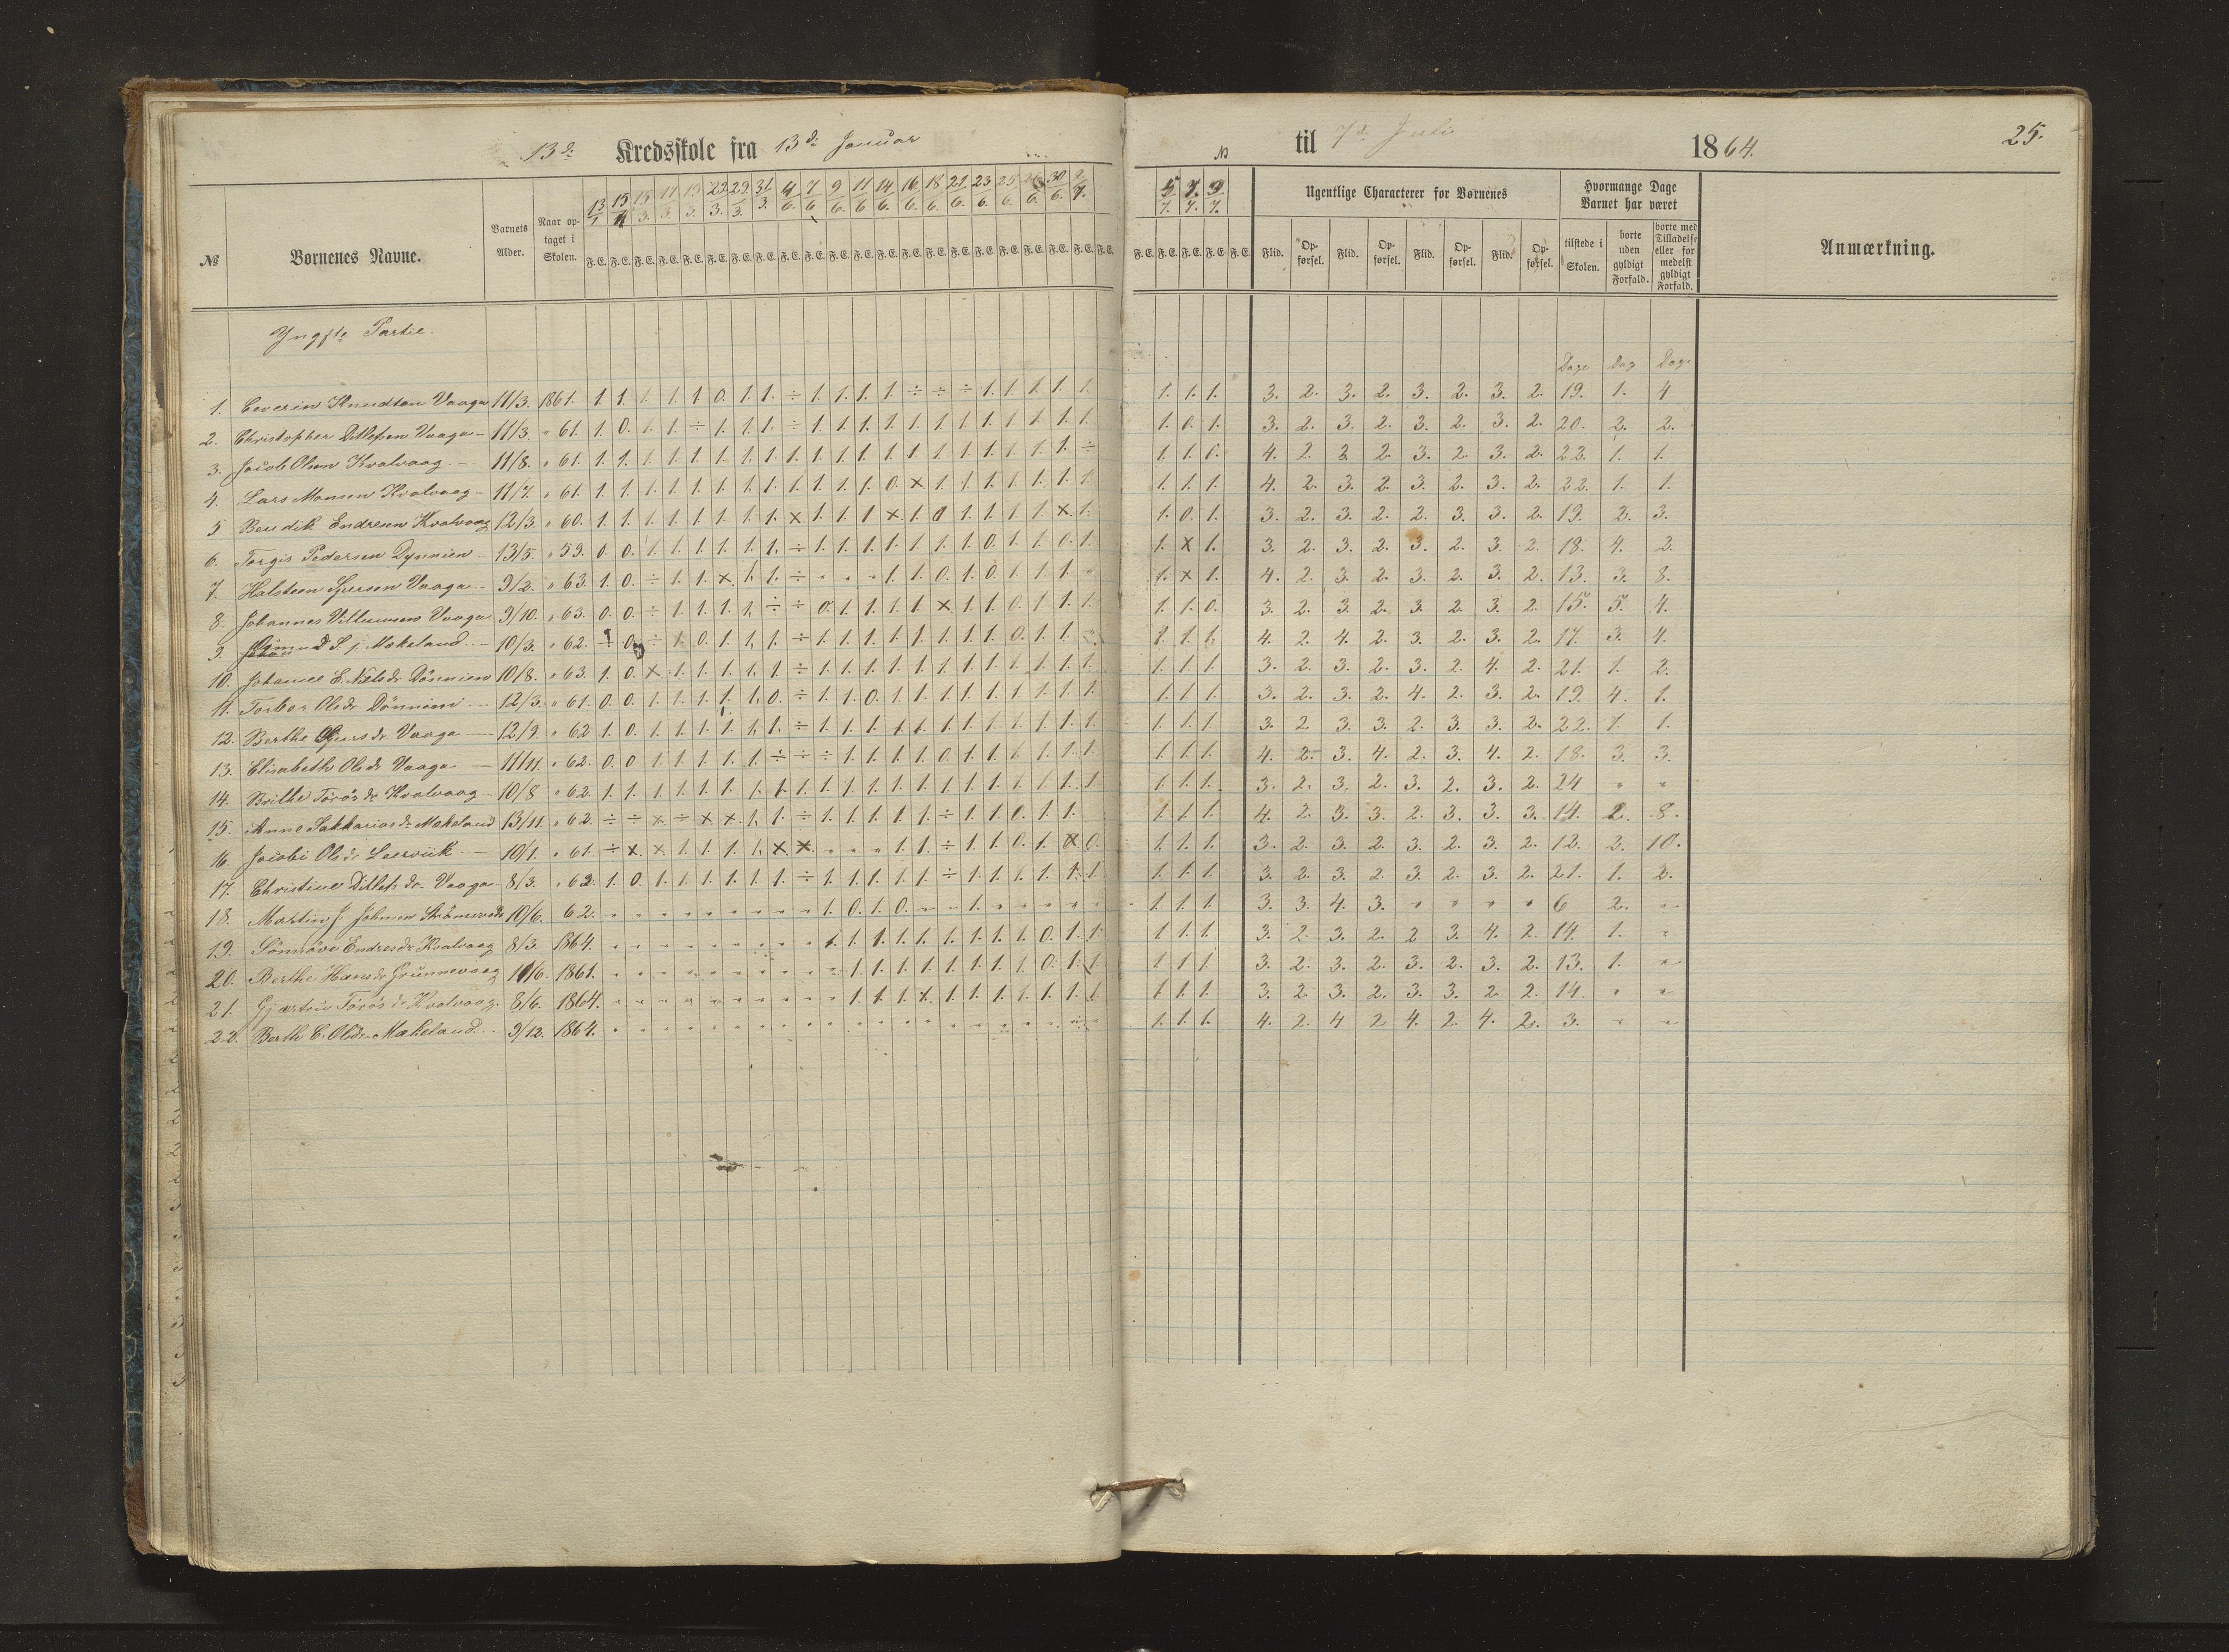 13de Kredsskole fra 13de Januar til 7de Juli 1864. 25.
№ Børnenes Navne. Barnets Alder. Naar optaget i Skolen. 13/1 15/1 15/3. 17/3. 19/3. 22/3. 29/3. 31/3. 4/6. 7/6 9/6. 11/6 14/6. 16/6. 18/6. 21/6. 23/6. 25/6. 30/6. 2/7. 5/7. 7/7. 9/7. Ugentlige Characterer for Børnenes Hvormange Dage Barnet har været Anmærkning.
F. E. F. E. F. E. F. E. F. E. F. E. F. E. F. E. F. E. F. E. F. E. F. E. F. E. F. E. F. E. F. E. F. E. F. E. F. E. F. E. F. E. F. E. F. E. F. E. F. E. F. E. F. E. Flid. Opførsel. Flid. Opførsel. Flid. Opførsel. Flid. Opførsel. tilstede i Skolen. borte uden gyldigt Forfald. borte med Tilladelse eller formedelst gyldigt Forfald.
Yngste Partie.
Dage Dag Dage
1. Severin Knudtsen Vaage 11/3. 1861. 1. 1. 1. 1. 1. 0. 1. 1. ÷ 1. 1. 1. 1. ÷ ÷ ÷ 1. 1. 1. 1. 1. 1. 1. 1. 3. 2. 3. 2. 3. 2. 3. 2. 19. 1. 4
2. Christopher Ditlefsen Vaage 11/3. " 61. 1. 0. 1. 1. ÷ 1. 1. 1. ÷ 1. 1. 1. 1. 1. 1. 1. 1. 1. 1. 1. 1. 1. 0. 1. 3. 2. 3. 2. 3. 2. 3. 2. 20. 2. 2.
3. Jacob Olsen Kvalvaag 11/8. " 61. 1. 1. 1. 1. 1. 1. 1. 1. 1. 1. 1. 1. 1. 1. 1. 1. 1. 1. 1. 1. ÷ 1. 1. 0. 4. 2. 3 2. 3. 2. 3. 2. 22. 1. 1.
4. Lars Monsen Kvalvaag 11/7. " 61. 1. 1. 1. 1. 1. 1. 1. 1. 1. 1. 1. 1. 0. × 1. 1. 1. 1. 1. 1. 1. 1. 1. 1. 4. 2. 3. 2. 3. 2. 3. 2. 22. 1. 1.
5 Bendik Endresen Kvalvaag 12/3. " 60. 1. 1. 1. 1. 1. 1. 1. 1. × 1. 1. 1 × 1. 0 1. 1. 1. 1. × 1. 1. 0. 1. 3. 2. 3. 2. 2. 3. 3. 2. 19. 2. 3.
6. Torgis Pedersen Dynnien 13/5. " 59. 0. 0. 1. 1. 1. 1. 1. 1. ÷ 1. 1. 1. 1. 1. 1. 1. 0. 1. 1. 0. 1. 1. × 1. 3. 2. 3. 2. 3. 2. 3. 2. 18. 4. 2.
7. Halsteen Vaage 9/2. " 63. 1. 0. ÷ 1. 1. × 1. 1. ÷ " " " 1. 1. 0. 1. 0. 1. 1. 1. " 1. × 1. 4. 2. 3. 2. 3. 2. 3. 2. 13. 3. 8.
8. Johannes Villumsen Vaage 9/10. " 63. 0. 0. ÷ 1. 1. 1. 1. ÷ ÷ 0. 1. 1. 1. 1. × 1. 1. 0. 1. 1. 1. 1. 1. 0. 3. 2. 3. 2. 3. 2. 3. 2. 15. 5. 4.
9. Makeland 10/3. " 62. 0. ÷ 1. 0. 1. 1. 1. ÷ 1. 1. 1. 1. 1. 1. 1. 1. 0. 1. 1. 1. 1. 1. 4. 2. 4. 2. 3. 2. 3. 2. 17. 3. 4.
10. Johanne E. Nilsdr Dönnien 10/8. " 63. 1. 0. × 1. 1. 1. 1. 1. ÷ 1. 1. 1. 1. 1. 1. 1. 1. 1. 1. 1. 1. 1. 1. 1. 3. 2. 3. 2. 3. 2. 4. 2. 21. 1. 2.
11. Torbor Olsdr Dönnieni 12/3. " 61. 0. 0. 1. 1. 1. 1. 1. 0. ÷ 1. 1. 0. 1. 1. 1. 1. 1. 1. 1. 1. 1. 1. 1. 1. 3. 2. 3. 2. 4. 2. 3. 2. 19. 4. 1.
12. Berthe Vaage 12/9. " 62 1. 0. 1. 1. 1. 1. 1. 1. ÷ 1. 1. 1. 1. 1. 1. 1. 1. 1. 1. 1. 1. 1. 1. 1 3. 2 3. 3. 2. 3. 3. 2. 22. 1. 1.
13. Elisabeth Olsdr Vaage 11/11. " 62. 0. 0 1. 1. 1. 1. 1. ÷ ÷ ÷ 1. 1. 1. 1. 0. 1. 1. 1. 1. 1. 1. 1. 1. 1. 4. 2. 3. 4. 2. 3. 4. 2. 18. 3. 3.
14. Brithe Törösdr Kvalvaag 10/8 " 62. 1. 1. 1. 1. 1. 1. 1. 1. 1. 1. 1. 1. 1. 1. 1. 1. 1. 1. 1. 1. 1. 1. 1. 1. 3. 2. 3. 2. 3. 2. 3. 2. 24 " "
15. Anne Sakkariasdr Makeland 13/11. " 62. ÷ ÷ × ÷ × × 1. 1. ÷ 1. 1. 1. 1. 1. ÷ 1. 1. 0. 1. 1. 1. 1. 1. 4. 2. 3. 3. 2. 3. 3. 3. 14. 2. 8.
16. Jacobi Olsdr Leervik 10/1. " 61. ÷ × × 1. 1. 1. 1. × × " " " 1. 1. ÷ 1. 1. 0. 1. × 0. 1. 1. 1. 3. 2. 3. 2. 3. 2. 3. 2. 12. 2. 10.
17. Christine Ditlefsdr Vaage 8/3. " 62. 1. 0. 1. 1. 1. 1. 1. 1. ÷ 1. 1. 1. 1. 1. ÷ 1. 1. 1. 1. 1. 1. 1. 1. 1. 3. 2. 3. 2. 3. 2. 3. 2. 21. 1. 2.
18. Martin J. Johnsen 10/6. 62. " " " " " " " " " 1. 0. 1. 0. " " 1. " " " " " 1. 1. 1. 3. 3. 4. 3. " " " " 6 2. "
19. Sönnöve Endresdr Kvalvaag 8/3. 1864. " " " " " " " " " 1. 1. 1. 1. 1. 1. 1. 1. 1. 0. 1. 1. 1. 1. 1. 3. 2. 3. 2. 2 3. 4. 2. 14. 1. "
20. Berthe Hansdr Grünnevaag 11/6. 1861. " " " " " " " " " " 1. 1. 1. 1. 1. 1. 1. 1. 0. 1. 1. 1. 1. 1. 3. 2. 3. 2. 3. 2. 3. 2. 13. 1. "
21. Gjertrü Törösdr Kvalvaag. 8/6. 1864. " " " " " " " " " " 1. 1. 1. 1. 1. 1. 1. 1. 1. 1. 1. 1. 1. 1. 3. 2 3. 2. 3. 3. 2 2. 14. " "
22. Berth C. Olsdr Makeland 9/12. 1864. " " " " " " " " " " " " " " " " " " " " " 1. 1. 1. 4. 2. 4 2 4. 2. 4. 2. 3. " "